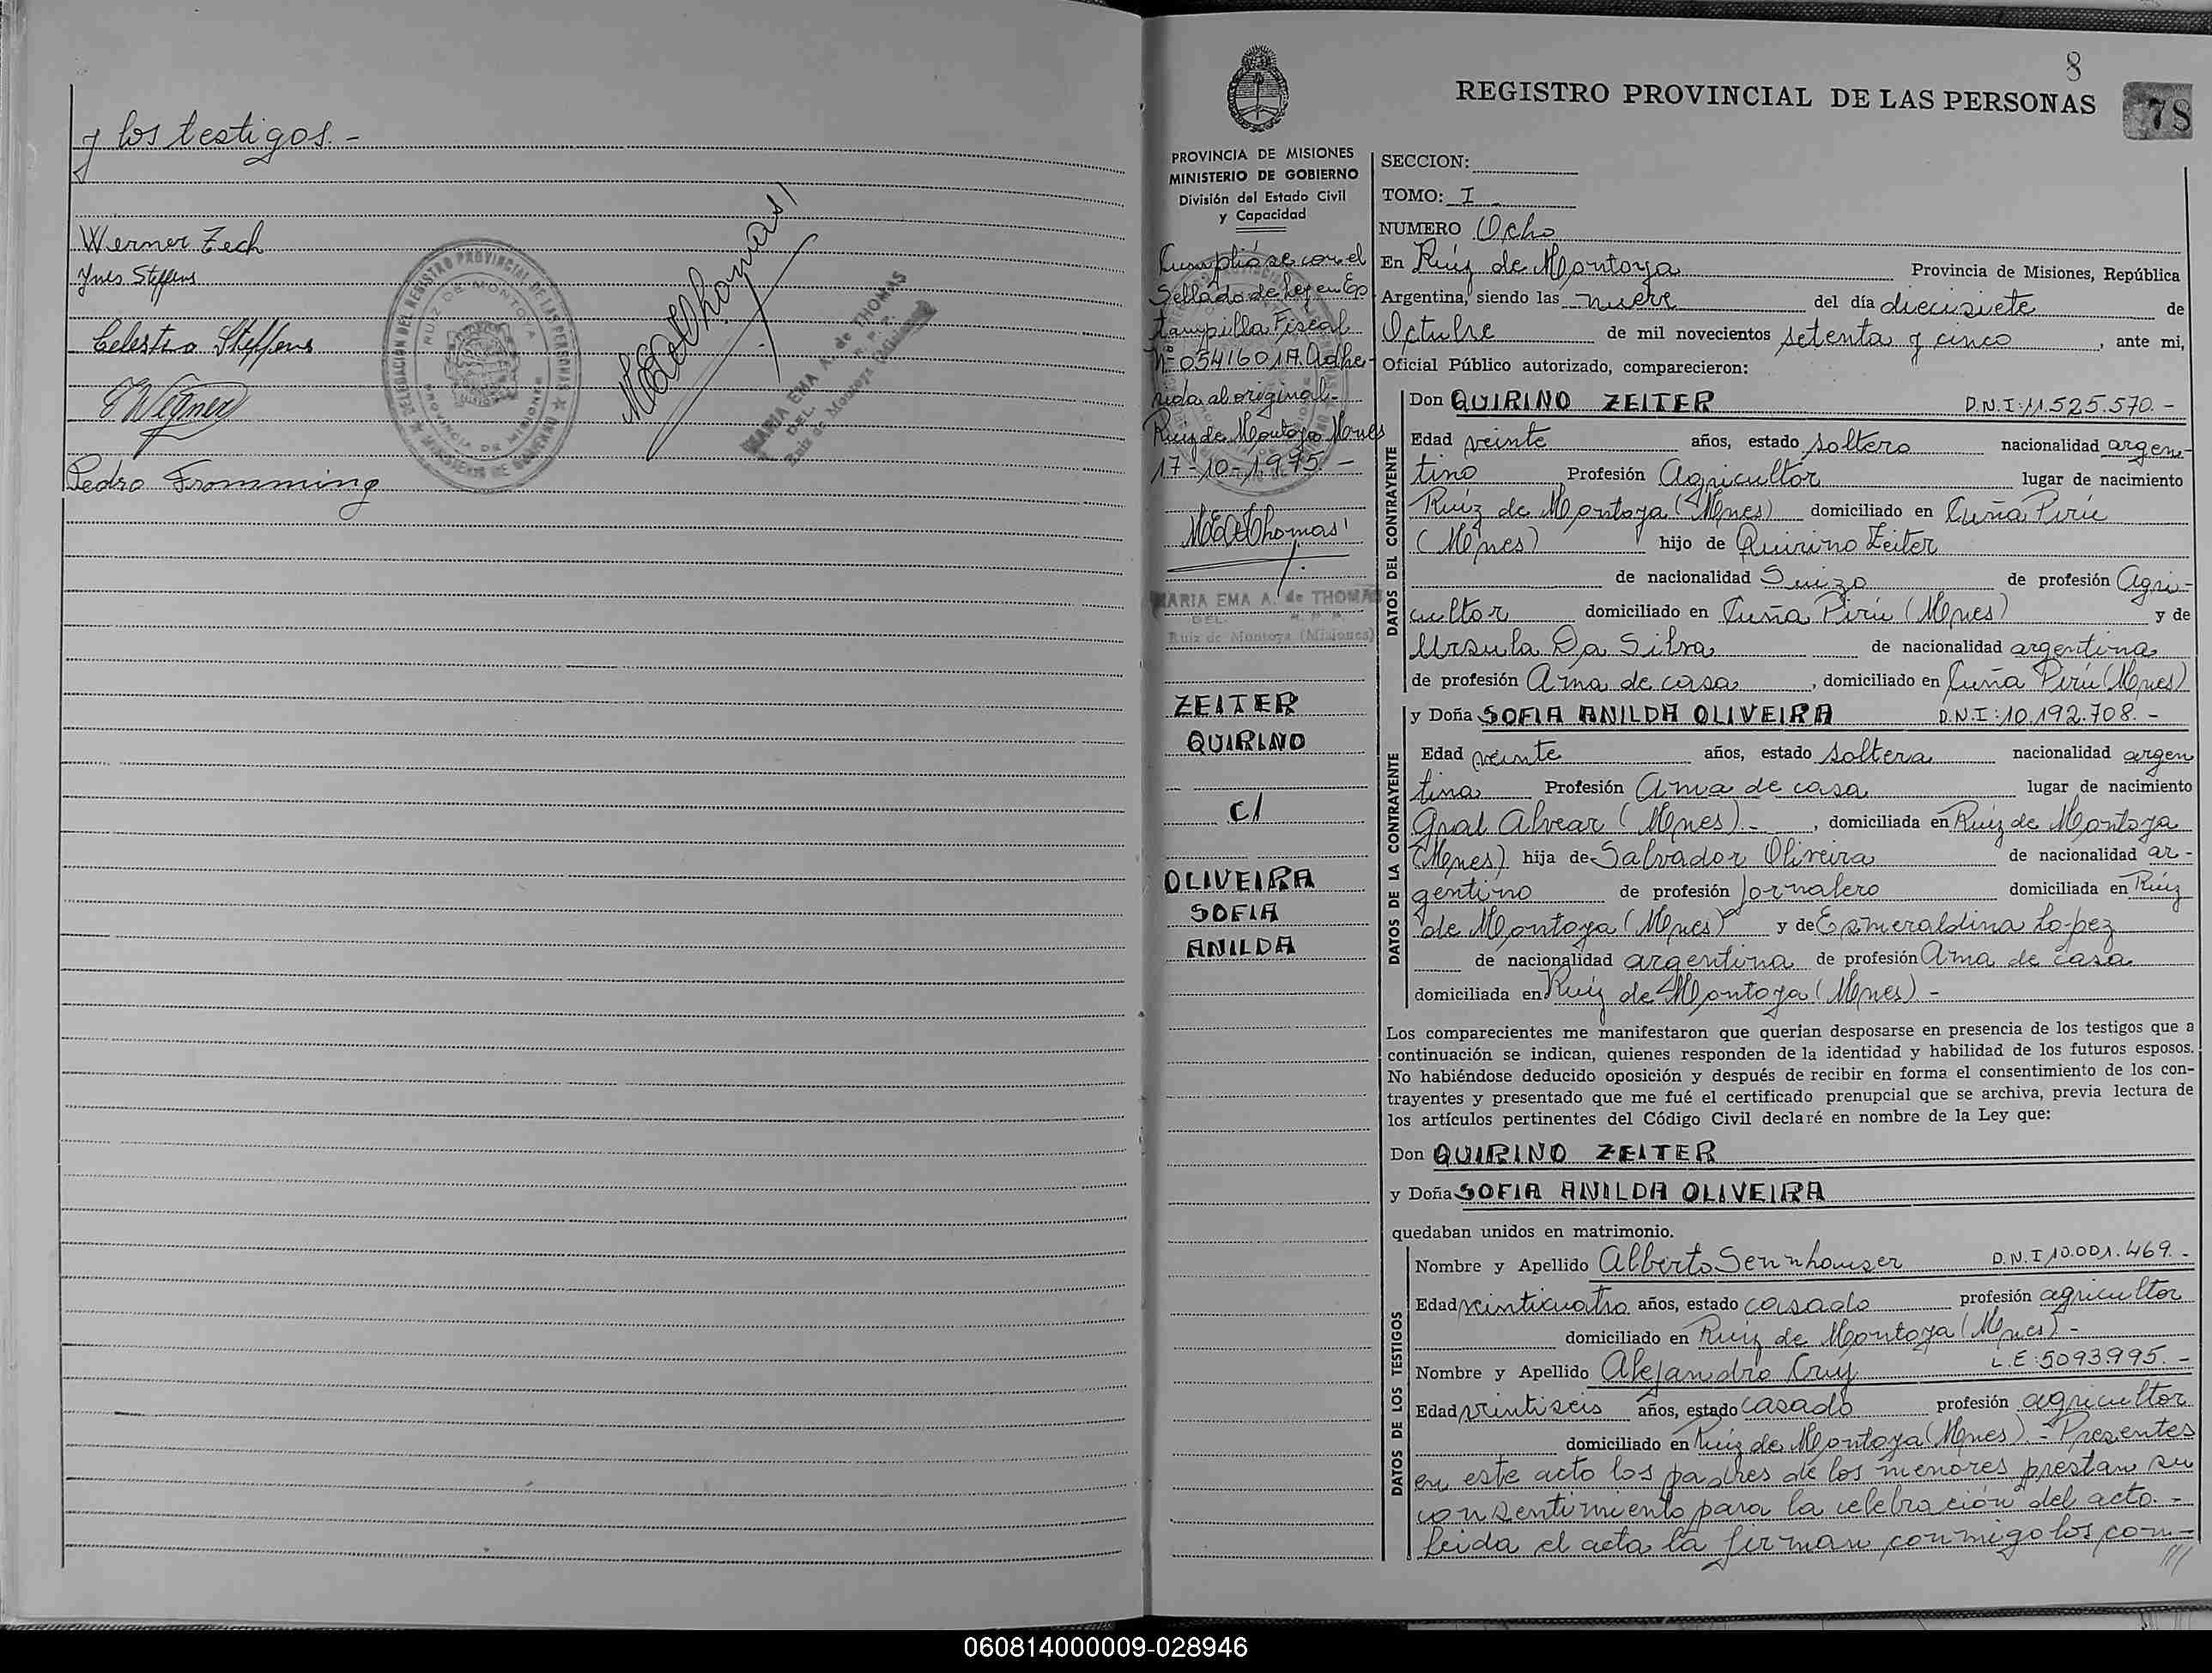 y los testigos.-
Werner Zech
Ynes Steffens
Celestro Steffens
Wegner
Pedro Fromming
DELEGACION DEL REGISTRO PROVINCIAL DE LAS PERSONAS
RUIZ DE MONTOYA
PROVINCIA DE MISIONES
MINISTERIO DE GOBIERNO
MEdeThomas
MARIA EMA A. de THOMAS
DEL. R. P. P.
Ruiz de Montoya (Misiones)
8
REGISTRO PROVINCIAL DE LAS PERSONAS
78
PROVINCIA DE MISIONES
MINISTERIO DE GOBIERNO
División del Estado Civil
y Capacidad
Cumplióse con el
Sellado de Ley en Es
tampilla Fiscal
Nº 05416017. Adhe-
rida al original.-
Ruiz de Montoya Mnes
17-10-1.975.-
MEdeThomas
MARIA EMA A. de THOMAS
DEL. R. P. P.
Ruiz de Montoya (Misiones)
ZEITER
QUIRINO
c/
OLIVEIRA
SOFIA
ANILDA
SECCION:
TOMO: I -
NUMERO Ocho
En Ruíz de Montoya Provincia de Misiones, República
Argentina, siendo las nueve del día diecisiete de
Octubre de mil novecientos setenta y cinco, ante mi,
Oficial Público autorizado, comparecieron:
DATOS DEL CONTRAYENTE
Don QUIRINO ZEITER D.N.I:11.525.570.-
Edad veinte años, estado soltero nacionalidad argen-
tino Profesión Agricultor lugar de nacimiento
Ruíz de Montoya (Mnes) domiciliado en Cuña Pirú
(Mnes) hijo de Quirino Zeiter
de nacionalidad Suizo de profesión Agri-
cultor domiciliado en Cuña Pirú (Mnes) y de
Ursula Da Silva de nacionalidad argentina
de profesión Ama de casa, domiciliado en Cuña Pirú (Mnes)
DATOS DE LA CONTRAYENTE
y Doña SOFIA ANILDA OLIVEIRA D.N.I:10.192.708.-
Edad veinte años, estado soltera nacionalidad argen
tina Profesión Ama de casa lugar de nacimiento
Gral Alvear (Mnes).-, domiciliada en Ruíz de Montoya
(Mnes) hija de Salvador Oliveira de nacionalidad ar-
gentino de profesión Jornalero domiciliada en Ruíz
de Montoya (Mnes) y de Esmeraldina Lopez
de nacionalidad argentina de profesión Ama de casa
domiciliada en Ruíz de Montoya (Mnes) -
Los comparecientes me manifestaron que querían desposarse en presencia de los testigos que a
continuación se indican, quienes responden de la identidad y habilidad de los futuros esposos.
No habiéndose deducido oposición y después de recibir en forma el consentimiento de los con-
trayentes y presentado que me fué el certificado prenupcial que se archiva, previa lectura de
los artículos pertinentes del Código Civil declaré en nombre de la Ley que:
Don QUIRINO ZEITER
y Doña SOFIA ANILDA OLIVEIRA
quedaban unidos en matrimonio.
DATOS DE LOS TESTIGOS
Nombre y Apellido Alberto Sennhauser D.N.I 10.001.469.-
Edad veinticuatro años, estado casado profesión agricultor
domiciliado en Ruíz de Montoya (Mnes).-
Nombre y Apellido Alejandro Cruz L.E:5093.995.-
Edad veintiseis años, estado casado profesión agricultor
domiciliado en Ruíz de Montoya (Mnes).- Presentes
en este acto los padres de los menores prestan su
consentimiento para la celebración del acto.-
Leida el acta la firman conmigo los com-
///
060814000009-028946